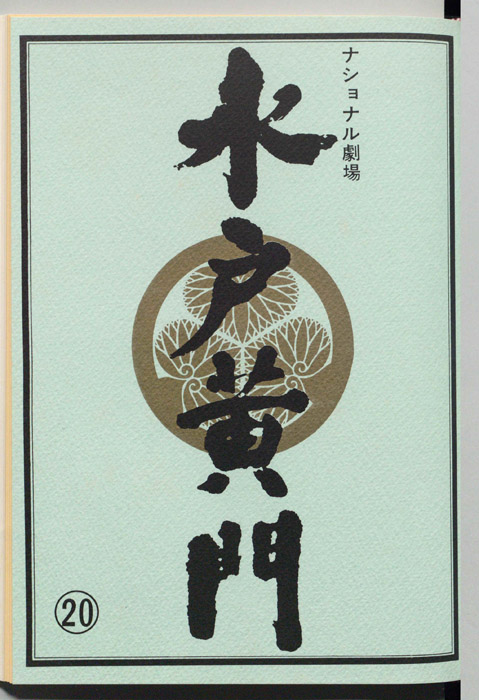 ナショナル劇場
水戸黄門
⑳